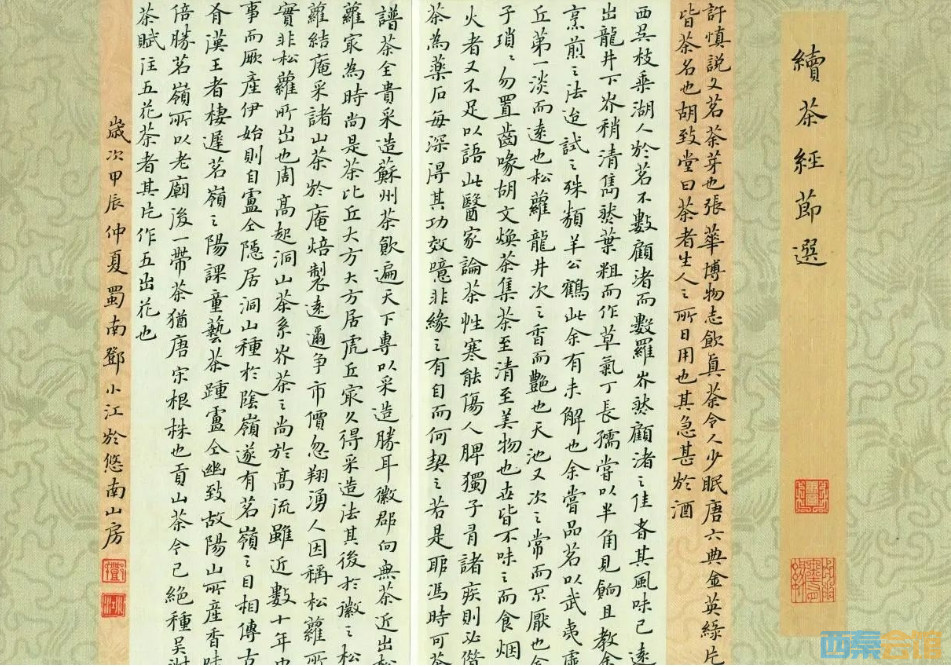 續茶經節選
許慎說文茗茶芽也張華博物志飲真茶令人少眠唐六典金英綠片
皆茶名也胡致堂曰茶者生人之所日用也其急甚於酒
西吳枝乘湖人於茗不數顧渚而數羅岕然顧渚之佳者其風味已遠
出龍井下岕稍清雋然葉粗而作草氣丁長孺嘗以半角見餉且教余
烹煎之法迨試之殊類羊公鶴此余有未解也余嘗品茗以武夷虎
丘第一淡而遠也松蘿龍井次之香而艷也天池又次之常而不厭也余
子瑣〻勿置齒喙胡文煥茶集茶至清至美物也世皆不味之而食烟
火者又不足以語此醫家論茶性寒能傷人脾獨予有諸疾則必借
茶為藥石每深得其功效噫非緣之有自而何契之若是耶馮時可茶
譜茶全貴采造蘇州茶飲遍天下專以采造勝耳徽郡向無茶近出松
蘿最為時尚是茶比丘大方大方居虎丘最久得采造法其後於徽之松
蘿結庵采諸山茶於庵焙製遠邇爭市價忽翔湧人因稱松蘿所
實非松蘿所出也周高起洞山茶系岕茶之尚於高流雖近數十年中
事而厥產伊始則自盧仝隱居洞山種於陰嶺遂有茗嶺之目相傳古
有漢王者棲遲茗嶺之陽課童藝茶踵盧仝幽致故陽山所產香味
倍勝茗嶺所以老廟後一帶茶猶唐宋根株也貢山茶今已絕種吳淑
茶賦注五花茶者其片作五出花也
歲次甲辰仲夏蜀南鄧小江於悠南山房
西秦会